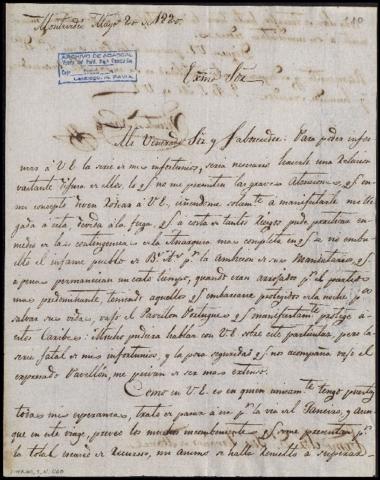 Montevideo Mayo 20 de 1820.
ARCHIVO DE ABASCAL
Exmo. Sör
Mi Venerado Sör y Favorecedor: Para poder infor-
mar à V.E. la serie de mis infortunios, seria necesario hacerle una relacion
bastante difusa de ellos, lo q.e no me permiten las graves atenciones, q.e en
mi concepto deven rodear à V.E. ciñendome solam.te à manifestarle mi lle-
gada à esta, devida à la fuga, q.e à costa de tantos riesgos pude practicar en
medio de las contingencias de la Anarquia mas completa en q.e se ha embu-
elto el infame pueblo de B.s Ay.s p.r la Ambicion de sus Mandatarios q.e
a pena permanecian un corto tiempo, quando eran arrojados p.r el partido
mas predominante, teniendo aquellos q.e embarcarse protegidos de la noche, p.a
salvar sus vidas, vajo el Pavellon Portugues q.e manifiestam.te protege à
estos Caribes: Mucho pudiera hablar con V.E. sobre este particular, pero la
serie fatal de mis infortunios, y la poca seguridad q.e me acompaña vajo el
expresado Pavellon, me privan de ser mas extenso.
Como en V.E. es en quien unicam.te tengo puesta
todas mis esperanzas, trato de pasar à esa p.r la via del Janeyro, y aun-
que en este viaje, preveo los muchos incombenientes q.e se me presentan p.r
la total escasès de recursos, mi animo se halla resuelto à superar-